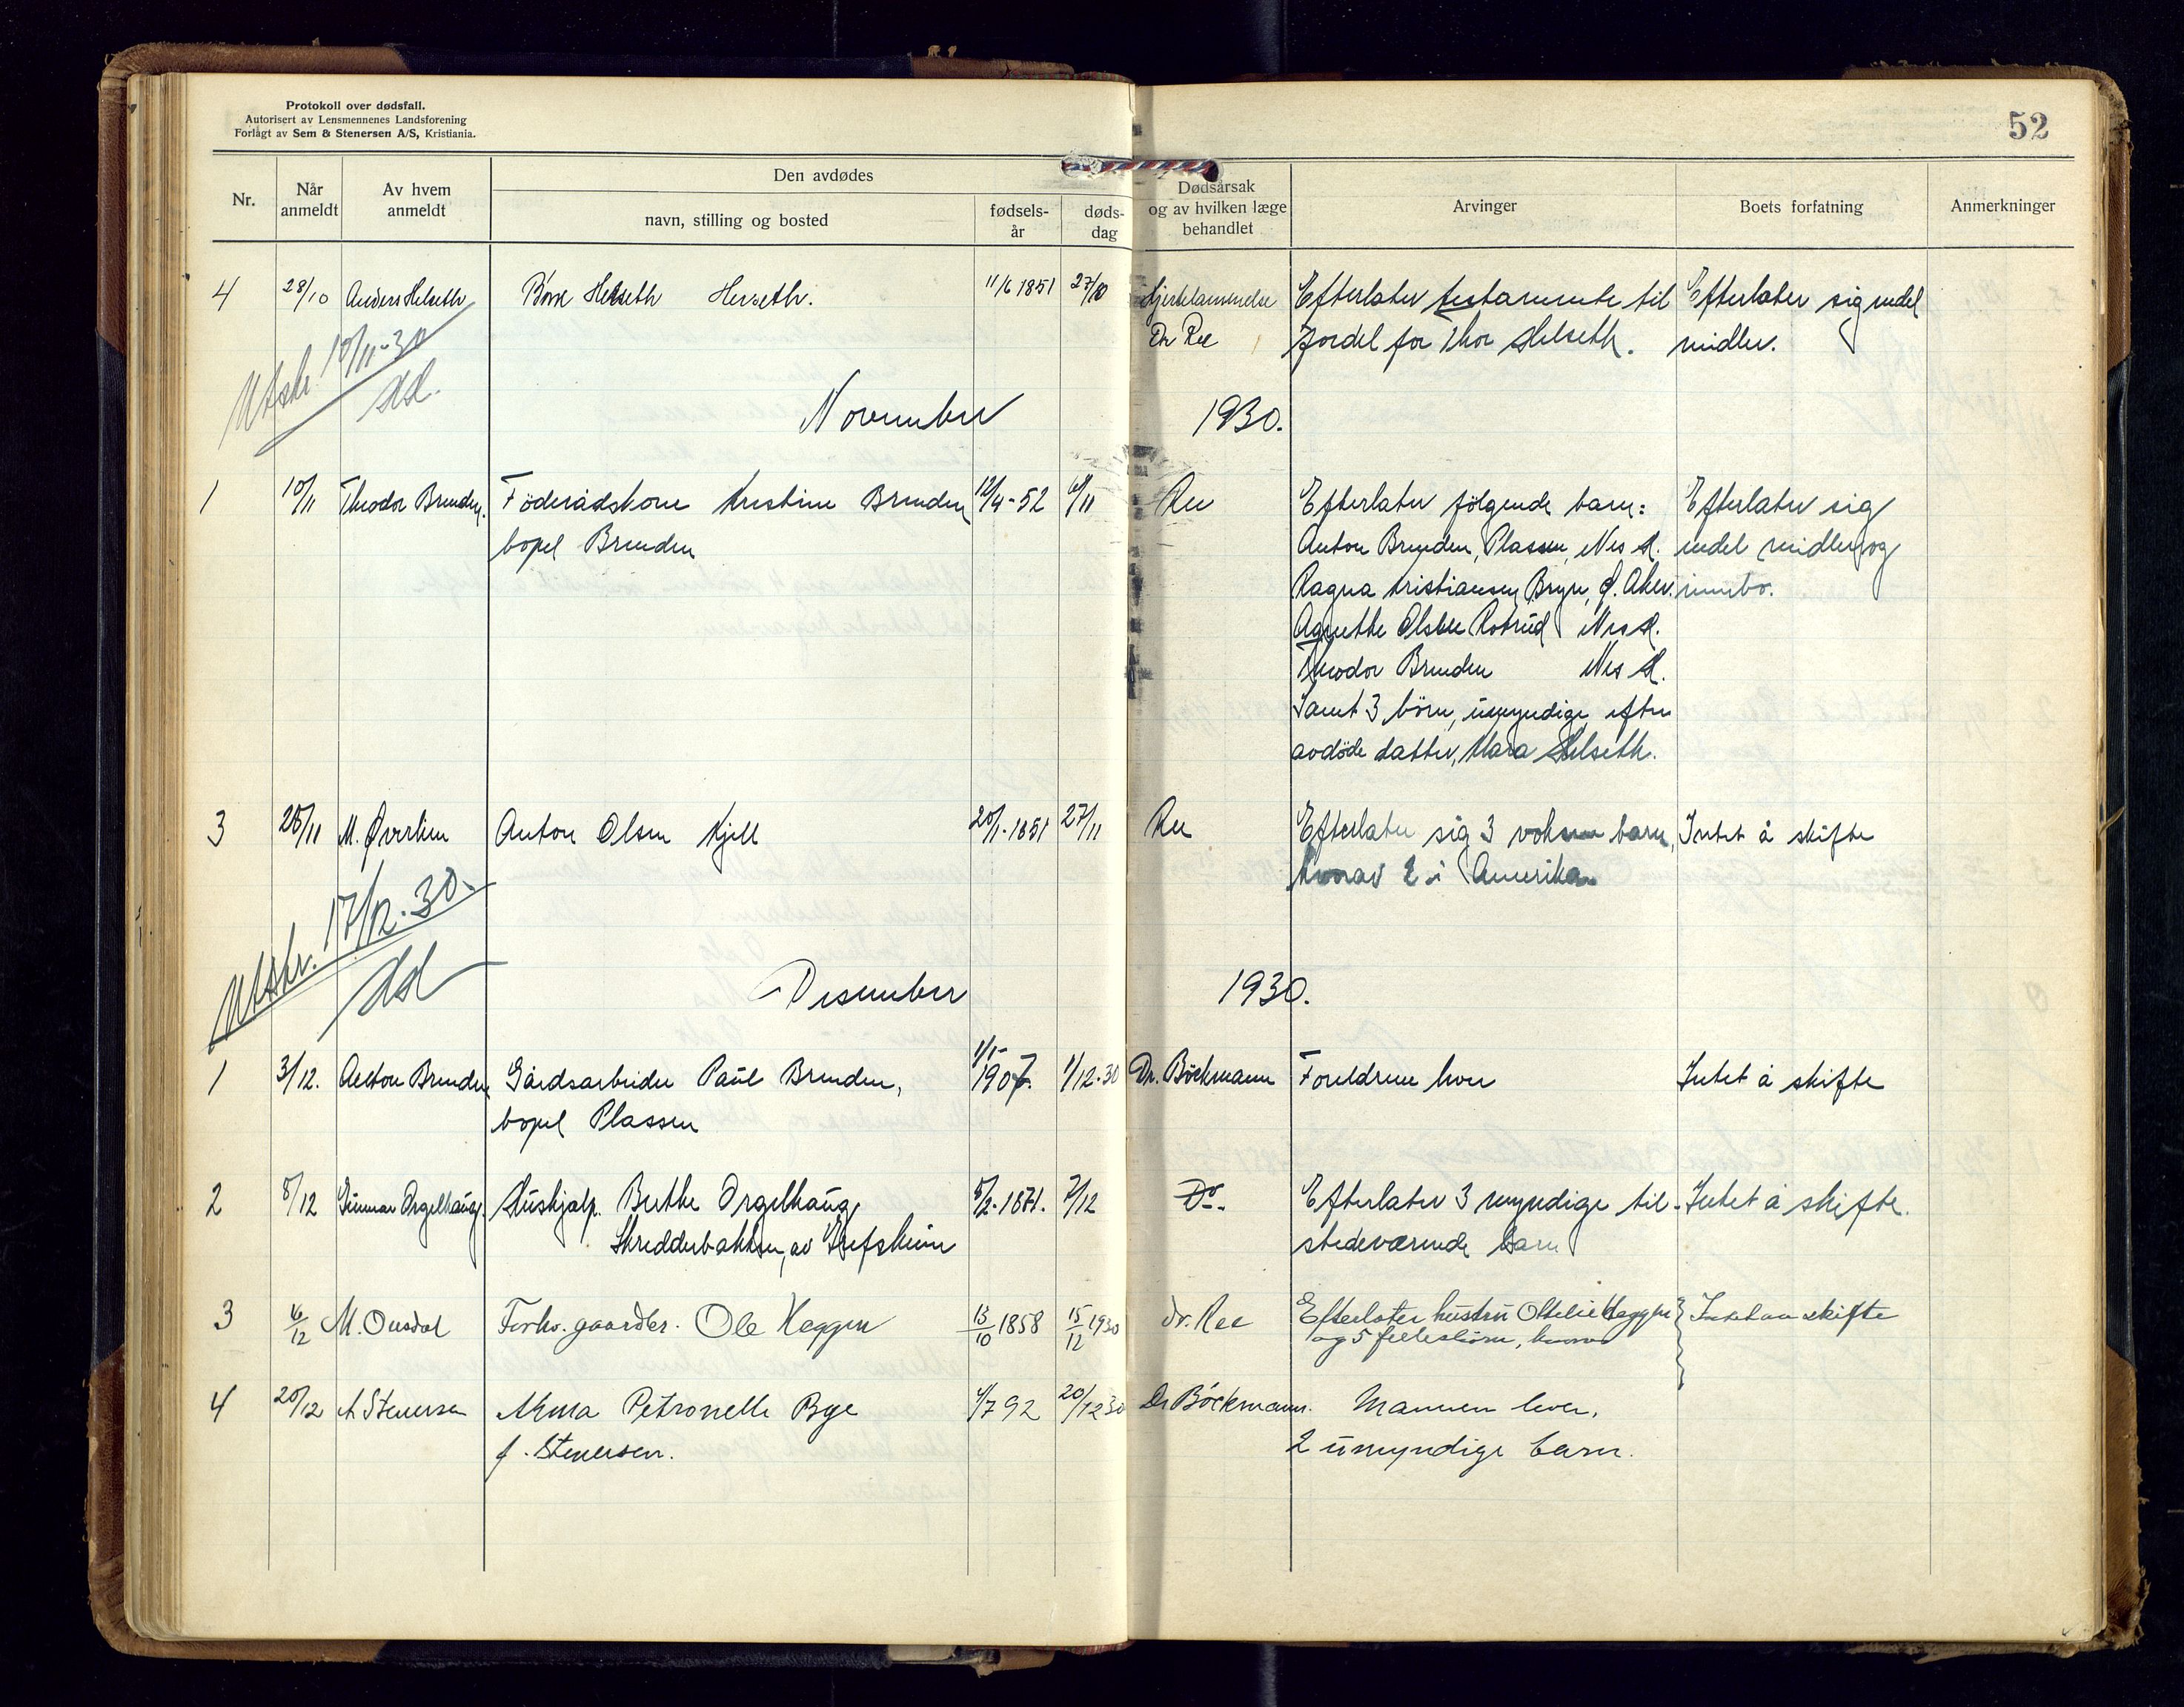 Protokoll over dødsfall.
Autorisert av Lensmennenes Landsforening
Forlagt av Sem & Stenersen A/S, Kristiania.
52
Nr.
Når anmeldt
Av hvem anmeldt
Den avdødes
navn, stilling og bosted
fødsels-år
døds-dag
Dødsårsak og av hvilken læge behandlet
Arvinger
Boets forfatning
Anmerkninger
4 28/10 Anders Helseth Helseth 11/6 1851 27/10 Hjertelammelse Efterlater testamente til Efterlater sig endel
Dr Ree fordel for Thor Helseth. midler.
Utskr. 10/11-30
November 1930.
1 10/11 Theodor Brenden. Föderådskone Kristine Brenden 12/4-52 Ree Efterlater fölgende barn: Efterlater sig
bopel Brenden Anton Brenden, Plassen, Nes H. endel midler og
Ragna Kristiansen, Bryn, Ø. Aker. innbo.
Agnethe Rotrud Nes H.
Theodor Brenden Nes H.
Samt 3 börn, umyndige, efter
avdöde datter, Mara Helseth.
3 28/11 M. Øverlien Anton Olsen Kjell 20/1-1851 27/11 Ree Efterlater sig 3 voksne barn, Intet å skifte
hvorav 2 i Amerika
Utskr. 17/12-30.
Desember 1930.
1 3/12. Anton Brenden Gårdsarbeider Paul Brenden, 1/1-1907. 1/12-30 Dr. Böckmann Foreldrene lever Intet å skifte
bopel Plassen
2 8/12 Gunnar Orgelhaug. Hushjelp. Berthe Orgelhaug 5/2-1871. 7/12 Do- Efterlater 3 myndige til- Intet å skifte.
Skredderbakken, av Hefsheim stedeværende barn
3 16/12 M. Ousdal Forhv. gaardbr. Ole Heggen 13/10 1858 15/12 1930 dr. Ree Efterlater hustru Ottelie Heggen Intet aa skifte
og 5 fellesbörn,
4 20/12 A Stenersen Alma Petronelle Bye 4/7 92 20/12 30 Dr Böckmann. Mannen lever.
f. Stenersen. 2 umyndige barn.